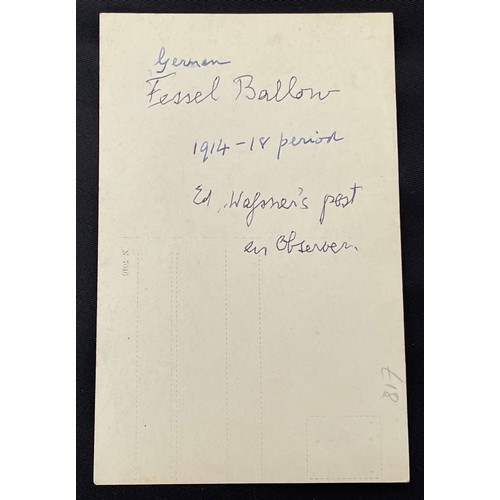 German
Fessel Ballow
1914-18 period
Ed. Wafsner's post
as Observer.
817